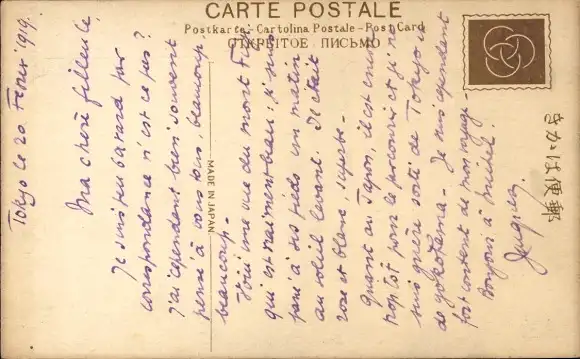 CARTE POSTALE
Postkarte - Cartolina Postale - Post Card
ОТКРЫТОЕ ПИСЬМО
きかは便郵
MADE IN JAPAN
Tokyo le 20 Février 1919.
Ma chère filleule,
Je suis peu bavard sur
correspondance n'est ce pas?
J'ai cependant bien souvent
pensé à vous tous, beaucoup
beaucoup -
Voici une vue du mont Fuji
qui est vraiment beau; je suis
passé à ses pieds un matin
au soleil levant. Il était
rose et blanc, superbe -
Quant au Japon, il est
trop tôt pour le parcourir et je ne
suis guère sorti de Tokyo,
de Yokohama - Je suis cependant
fort content de mon voyage
Bonjour à Michel.